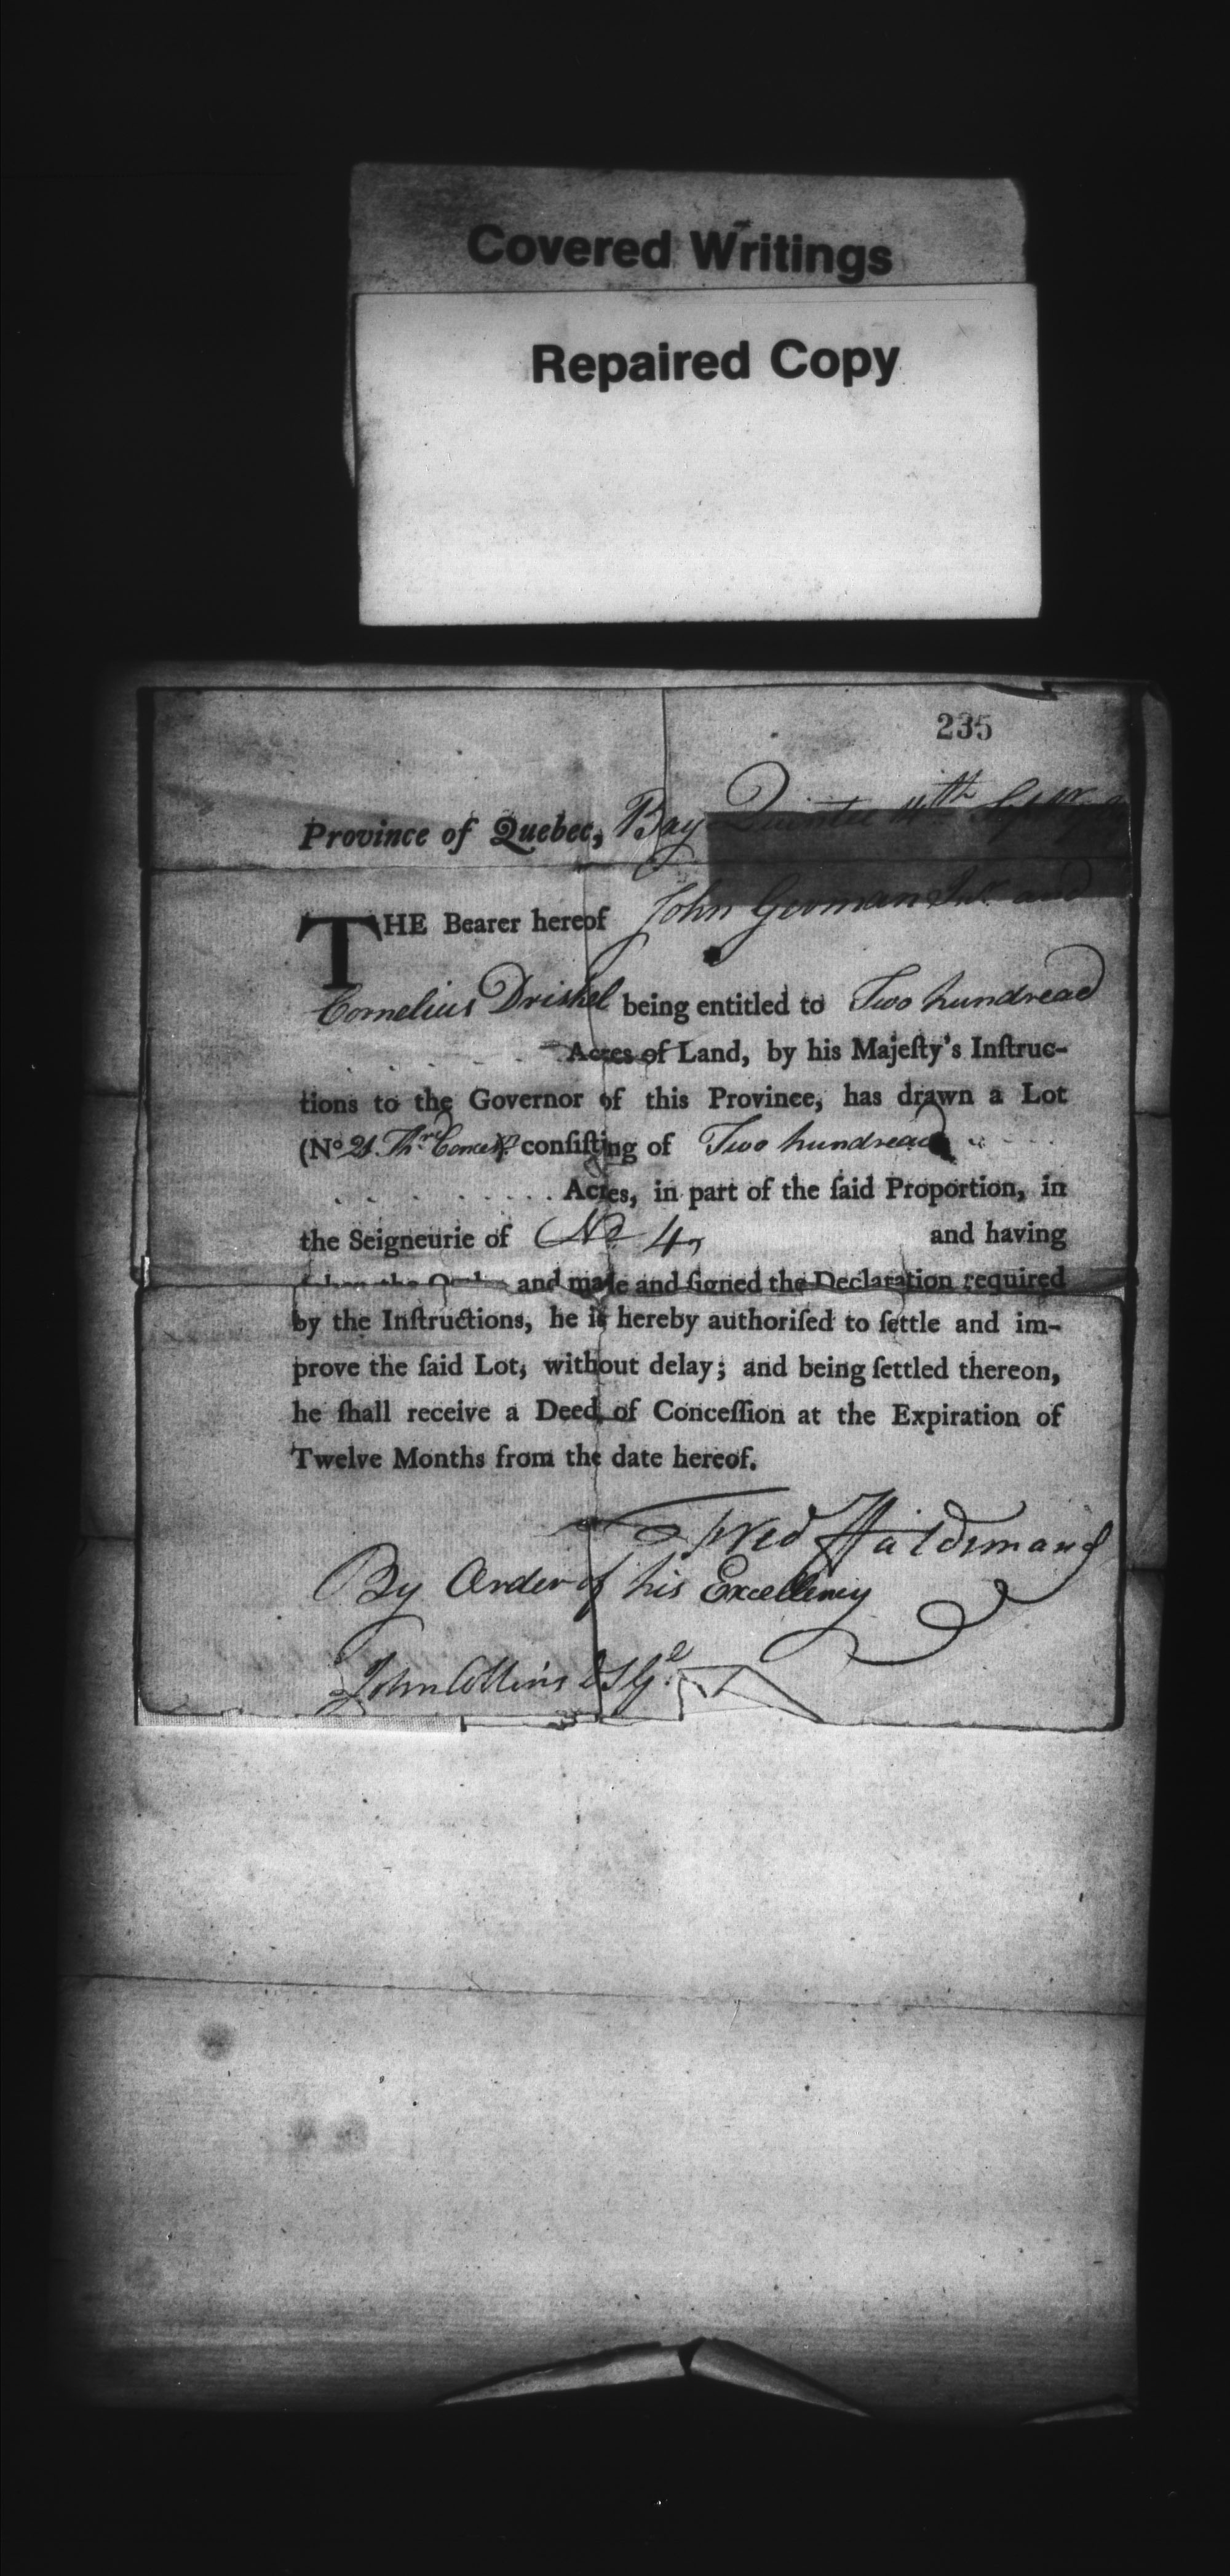 Covered Writings
Repaired Copy
235
Province of Quebec, Bay Quintee 14th Septr
THE Bearer hereof John German Junr and
Cornelius Driskel being entitled to Two hundread
Acres of Land, by his Majeſty's Inſtruc-
tions to the Governor of this Province, has drawn a Lot
(No 21 Conceſs conſiſting of Two hundread
Acres, in part of the ſaid Proportion, in
the Seigneurie of No 4, and having
taken the Oaths and made and ſigned the Declaration required
by the Inſtructions, he is hereby authoriſed to ſettle and im-
prove the ſaid Lot, without delay; and being ſettled thereon,
he ſhall receive a Deed of Conceſſion at the Expiration of
Twelve Months from the date hereof.
Fred Haldimand
By Order of his Excellency
John Collins D S Gl